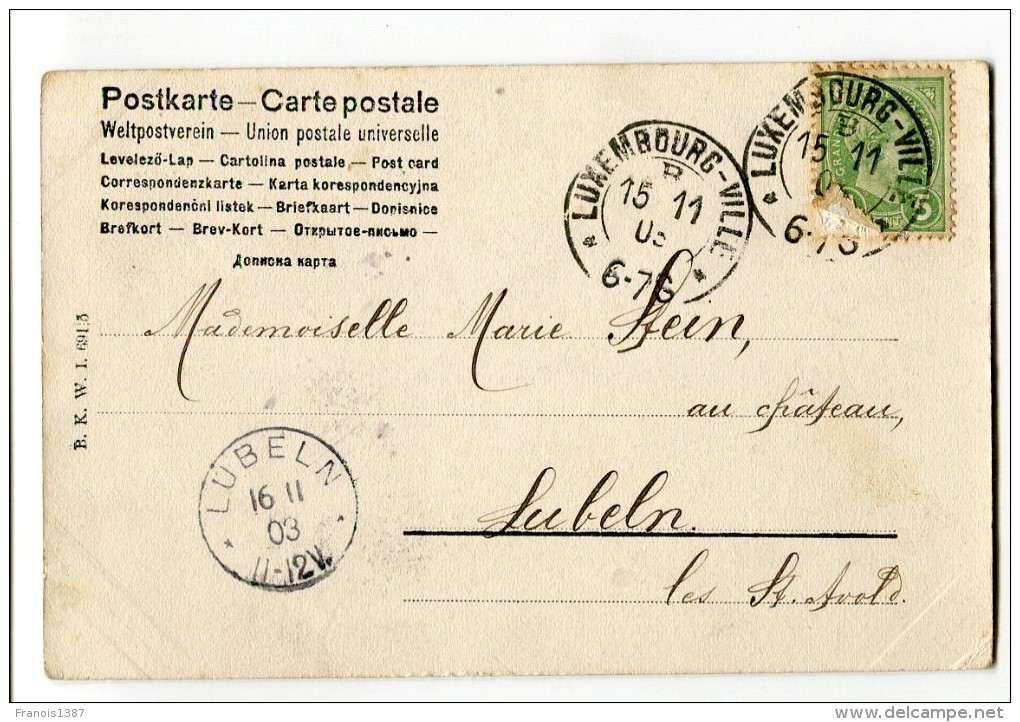 Postkarte – Carte postale
Weltpostverein — Union postale universelle
Levelező-Lap — Cartolina postale — Post card
Correspondenzkarte — Karta korespondencyjna
Korespondenční listek — Briefkaart — Dopisnice
Brefkort — Brev-Kort — Открытое-письмо —
Дописна карта
LUXEMBOURG-VILLE
B
15 11
03
6-7S
LUXEMBOURG-VILLE
B
15 11
6-7S
5
B. K. W. I. 691/5
Mademoiselle Marie Stein,
au château,
LÜBELN
16 11
03
11-12V.
Lubeln.
les St. Avold.
Francois1387
delcampe.net